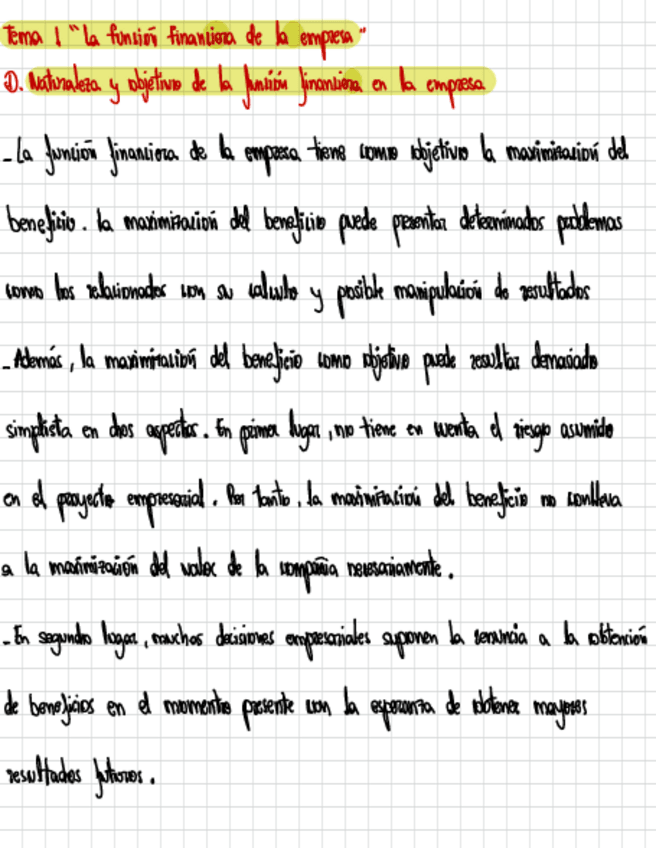 Tema 1 "La función financiera de la empresa"
①. Naturaleza y objetivo de la función financiera en la empresa
- La función financiera de la empresa tiene como objetivo la maximización del
beneficio. La maximización del beneficio puede presentar determinados problemas
como los relacionados con su calculo y posible manipulación de resultados
- Además, la maximización del beneficio como objetivo puede resultar demasiado
simplista en dos aspectos. En primer lugar, no tiene en cuenta el riesgo asumido
en el proyecto empresarial. Por tanto, la maximización del beneficio no conlleva
a la maximización del valor de la compañia necesariamente.
- En segundo lugar, muchas decisiones empresariales suponen la renuncia a la obtención
de beneficios en el momento presente con la esperanza de obtener mayores
resultados futuros.